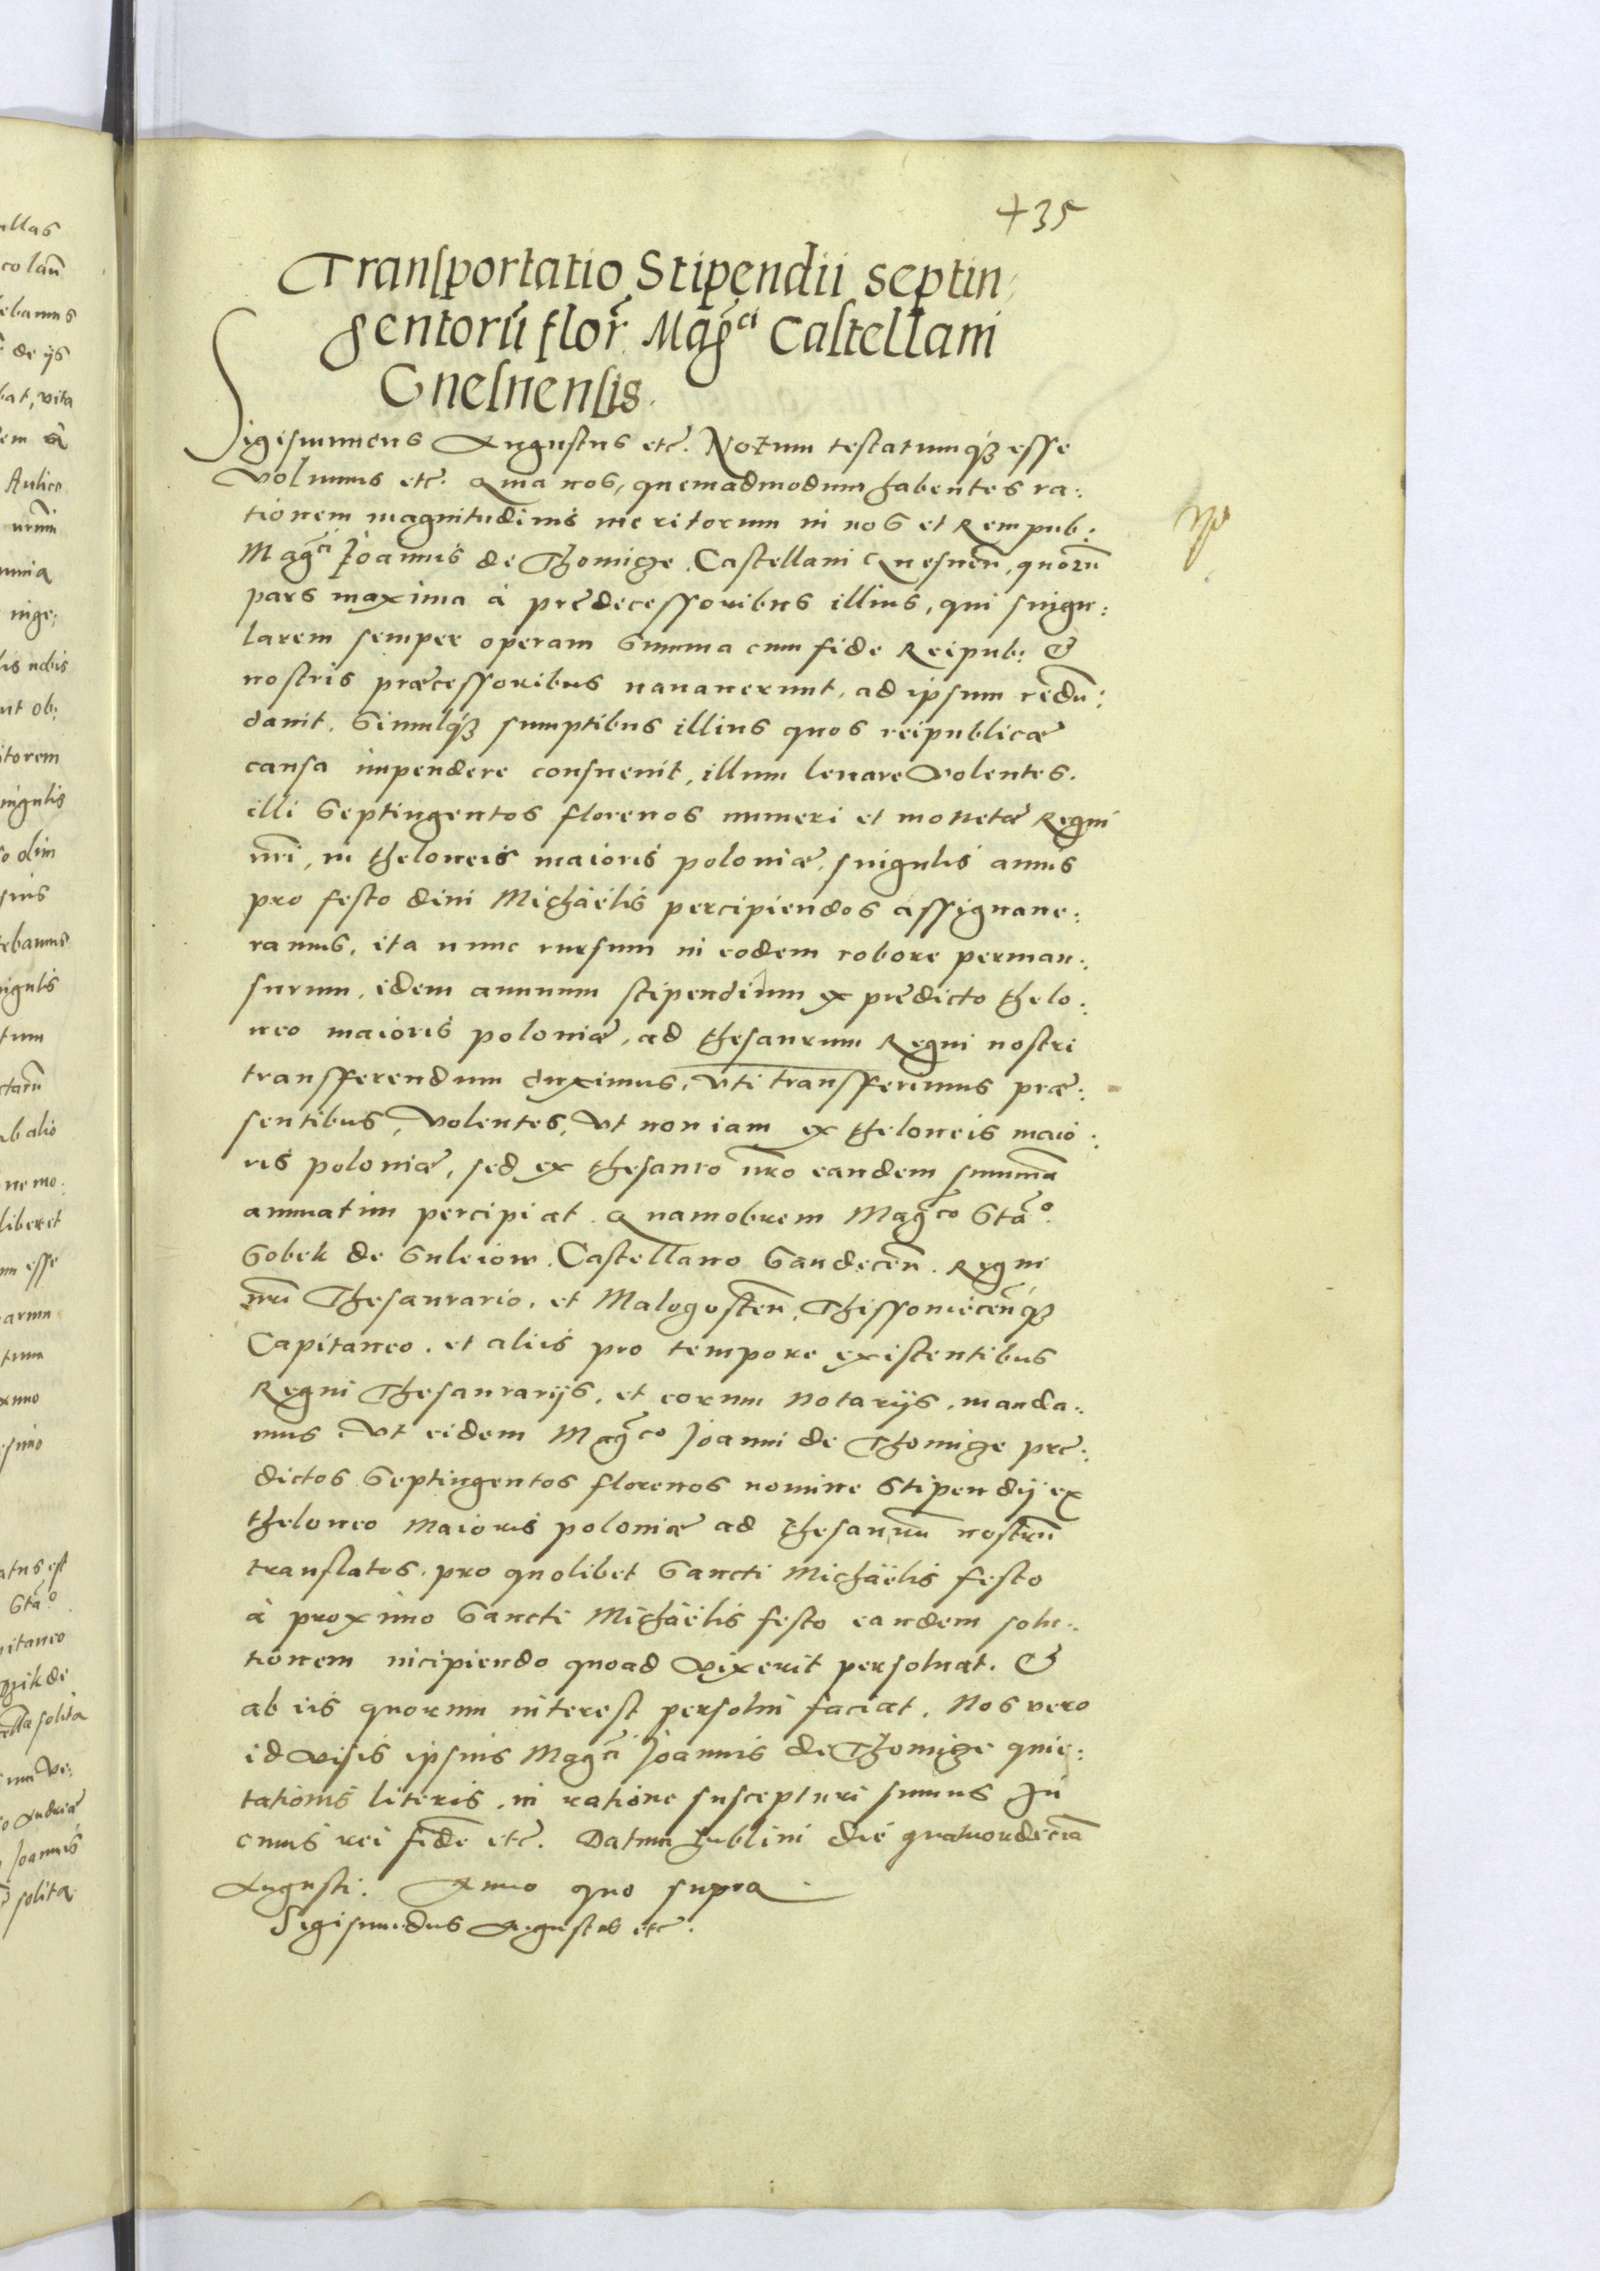 +35
Transportatio Stipendii septin
gentorū flor̄ Mag^ci Castellani
Gnesnensis.
Sigismundus Augustus etc. Notum testatumq̃ esse
volumus etc. Quia nos, quemadmodum habentes ra:
tionem magnitudinis meritorum in nos et Rempub:
Mag^ci Joannis de Thomicze. Castellani Gnesnen̄, quorū
pars maxima à predecessoribus illius, qui singu:
larem semper operam summa cum fide Reipub: &
nostris præcessoribus nauauerunt, ad ipsum redū:
dauit. Simulq̃ sumptibus illius quos reipublicæ
causa impendere consueuit, illum leuare volentes.
illi Septingentos florenos numeri et monetæ Regni
nr̄i, in theloneis maioris poloniæ, singulis annis
pro festo diui Michaëlis percipiendos assignaue:
ramus, ita nunc rursum in eodem robore perman:
surum, idem annuum stipendium ex predicto thelo:
neo maioris poloniæ, ad thesaurum Regni nostri
transferendum duximus, vti transferimus præ:
sentibus, volentes, vt non iam ex theloneis maio:
ris poloniæ, sed ex thesauro nr̄o eandem summā
annuatim percipiat. Quamobrem Mag^co Sta^o.
Sobek de Suleiow. Castellano Sandecen̄. Regni
nr̄i Thesaurario, et Malogosten̄, Thissouiecen̄q̃
Capitaneo, et aliis pro tempore existentibus
Regni Thesaurarijs, et eorum Notarijs, manda:
mus, vt eidem Mag^co Joanni de Thomicze pre:
dictos Septingentos florenos nomine stipendij ex
theloneo Maioris poloniæ ad thesaurū nostrū
translatos, pro quolibet Sancti Michaëlis festo
à proximo Sancti Michaëlis festo eandem solu:
tionem incipiendo quoad vixerit persoluat. &
ab iis quorum interest persolui faciat. Nos vero
id visis ipsius Mag^ci Joannis de Thomicze quie:
tationis literis, in ratione suscepturi sumus In
cuius rei fidē etc. Datum Lublini die quatuordecīa
Augusti. Anno quo supra
Sigismūdus Augustus etc.